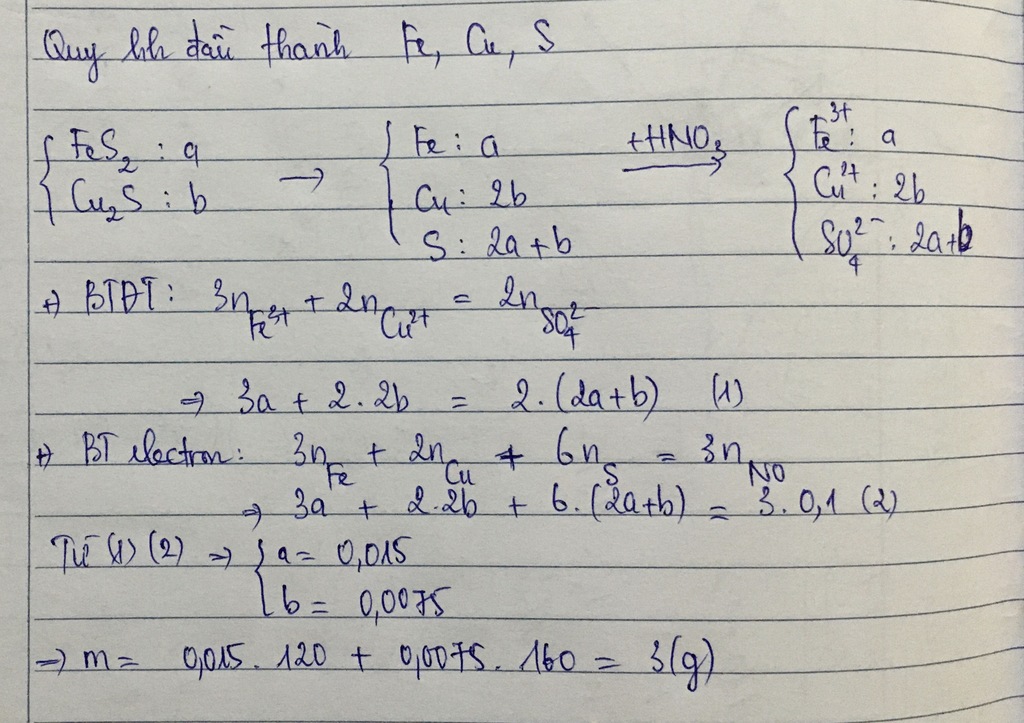 Quy hh đầu thành Fe, Cu, S
{ FeS₂ : a → { Fe : a +HNO₃ → { Fe³⁺ : a
Cu₂S : b Cu : 2b Cu²⁺ : 2b
S : 2a+b SO₄²⁻ : 2a+b
+) BTĐT : 3n Fe³⁺ + 2n Cu²⁺ = 2n SO₄²⁻
⇒ 3a + 2.2b = 2.(2a+b) (1)
+) BT electron : 3n Fe + 2n Cu + 6n S = 3n NO
⇒ 3a + 2.2b + 6.(2a+b) = 3.0,1 (2)
Từ (1) (2) ⇒ { a = 0,015
b = 0,0075
⇒ m = 0,015.120 + 0,0075.160 = 3(g)